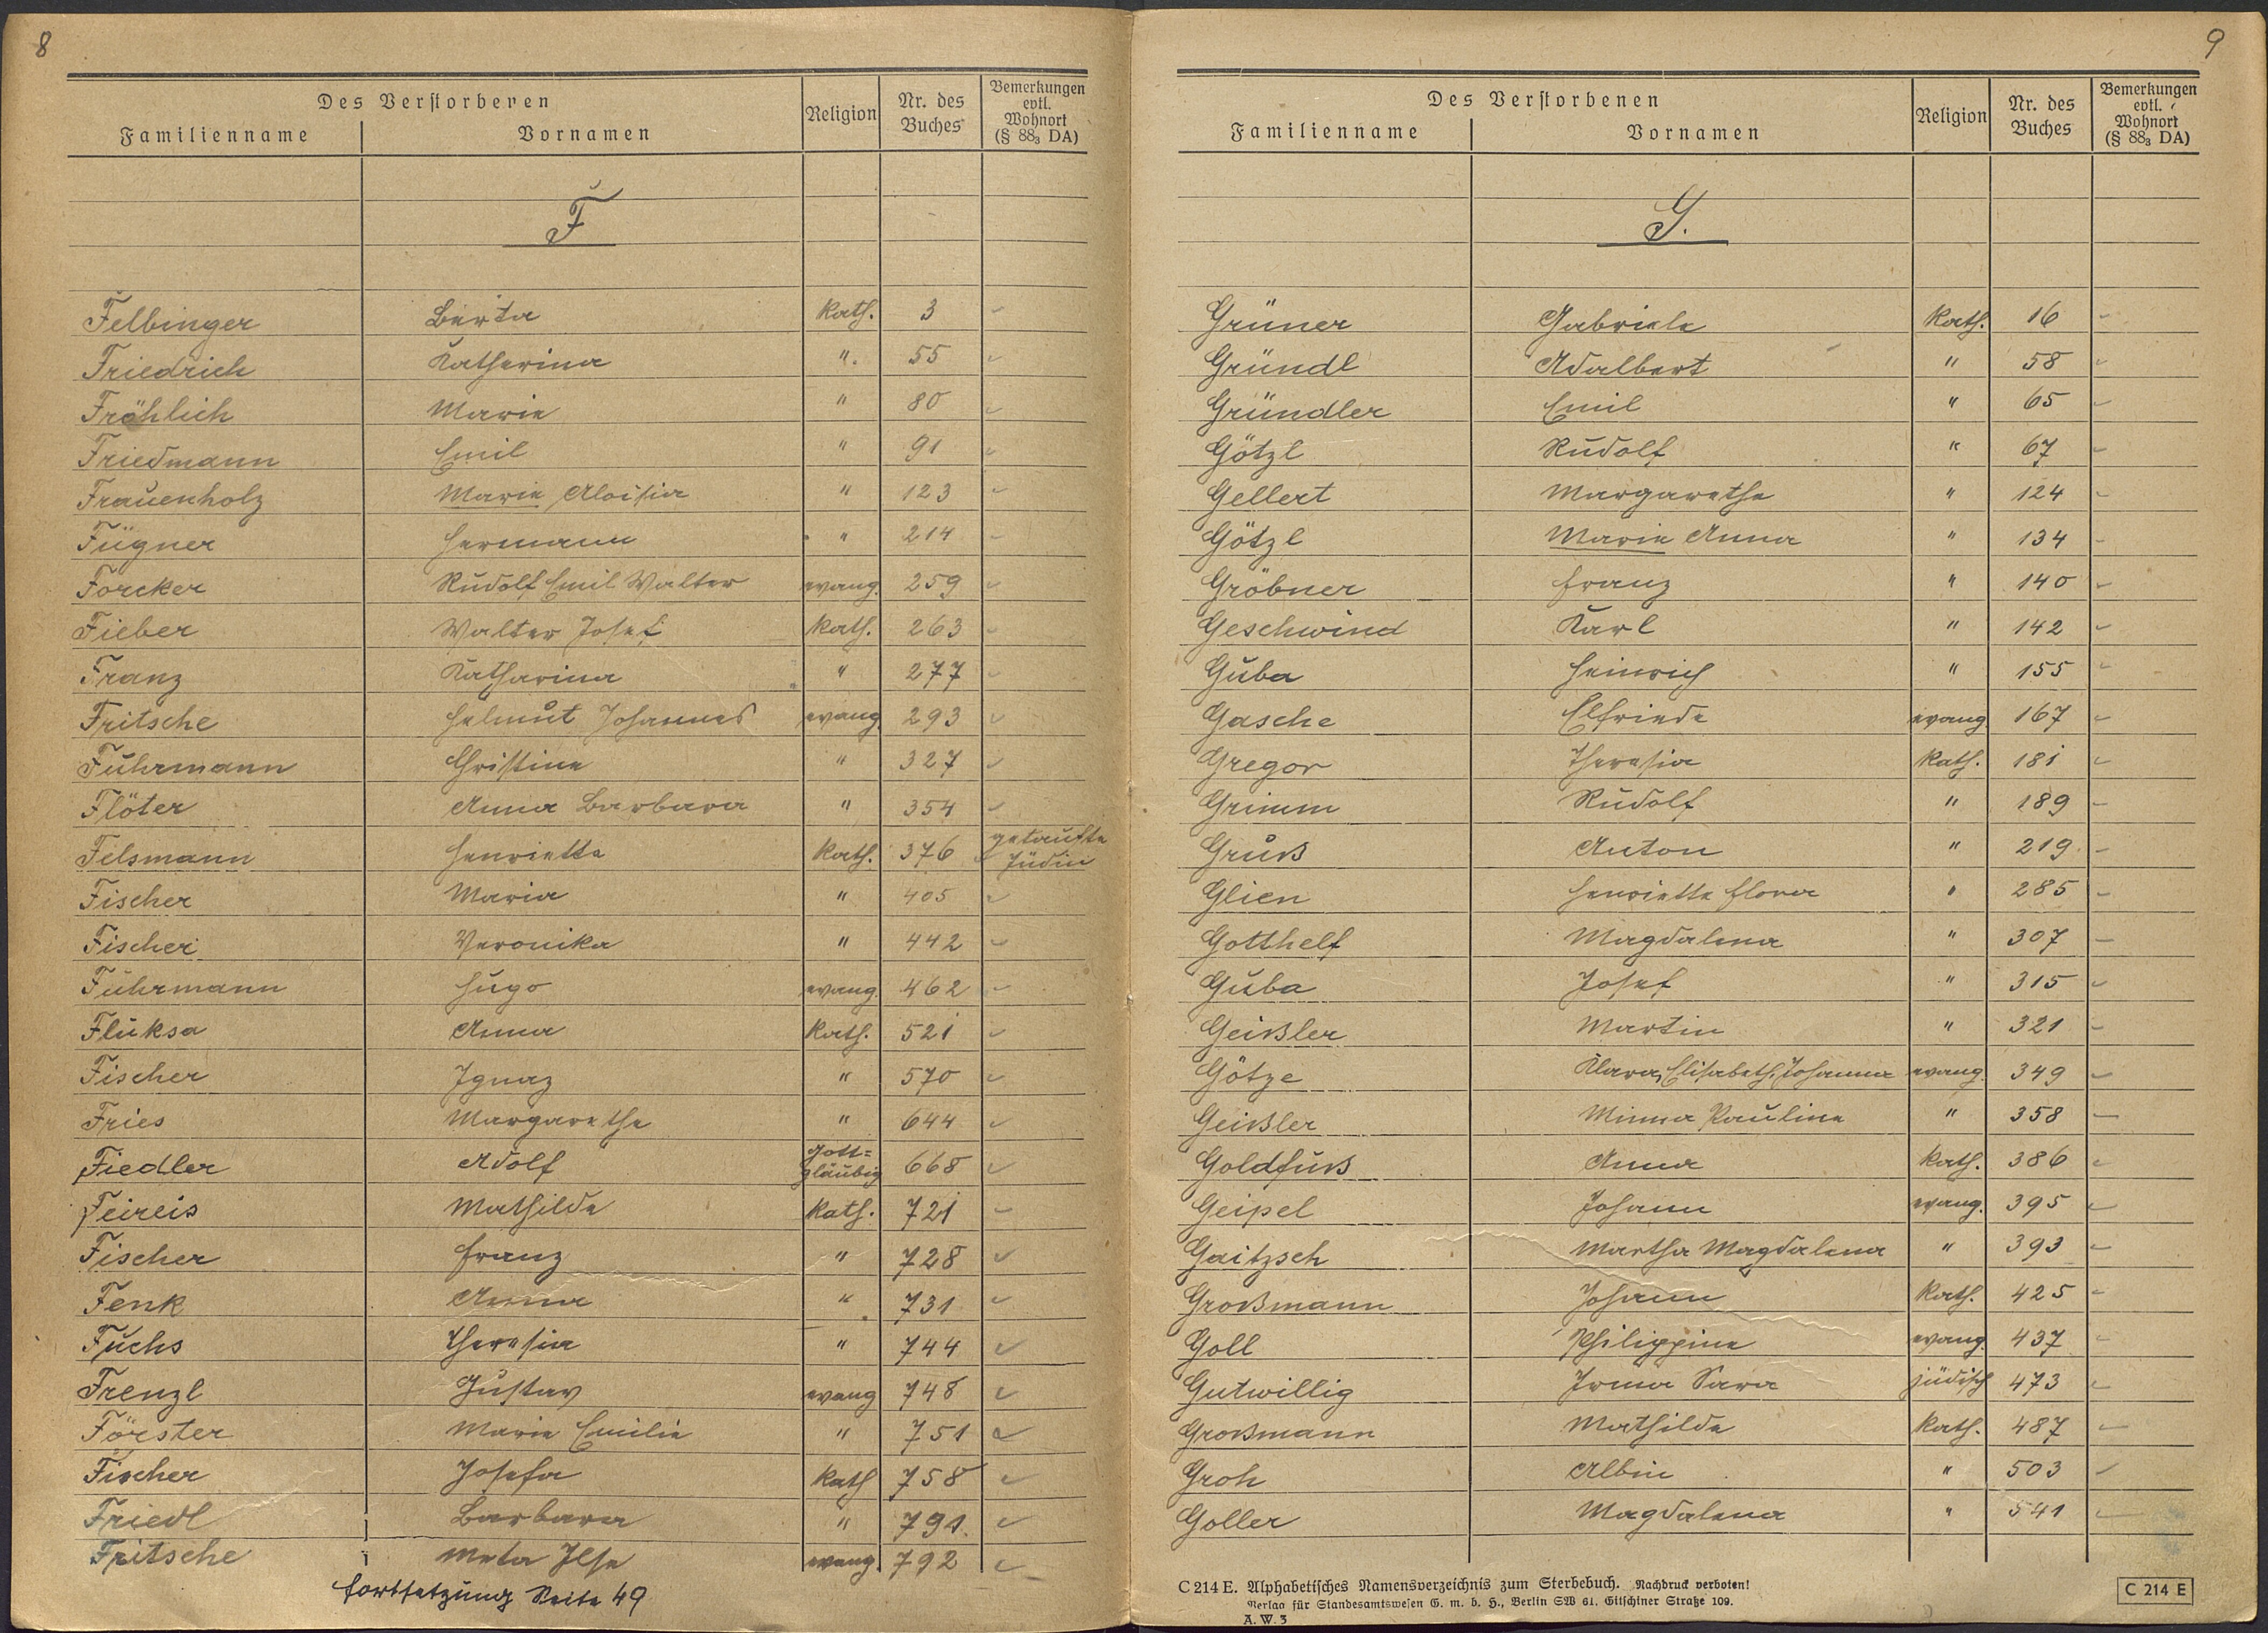 8
Des Verstorbenen
Familienname Vornamen Religion Nr. des Buches Bemerkungen evtl. Wohnort (§ 88₃ DA)
F
Felbinger Berta kath. 3
Friedrich Katharina ". 55
Fröhlich Marie " 80
Friedmann Emil " 91
Frauenholz Marie Aloisia " 123
Fügner Hermann " 214
Forcker Rudolf Emil Walter evang. 259
Fieber Walter Josef kath. 263
Franz Katharina " 277
Fritsche Helmut Johannes evang. 293
Fuhrmann Christine " 327
Flöter Anna Barbara " 354
Felsmann Henriette kath. 376 getaufte Jüdin
Fischer Maria " 405
Fischer Veronika " 442
Fuhrmann Hugo evang. 462
Fluksa Anna kath. 521
Fischer Ignaz " 570
Fries Margarethe " 644
Fiedler Adolf gott=gläubig 668
Feireis Mathilde kath. 721
Fischer Franz " 728
Fenk Anna " 731
Fuchs Theresia " 744
Frenzl Gustav evang 748
Förster Marie Emilie " 751
Fischer Josefa kath 758
Friedl Barbara " 791.
Fritsche Meta Ilse evang. 792
Fortsetzung Seite 49
9
Des Verstorbenen
Familienname Vornamen Religion Nr. des Buches Bemerkungen evtl. Wohnort (§ 88₃ DA)
G.
Grüner Gabriele kath. 16
Gründl Adalbert " 58
Gründler Emil " 65
Götzl Rudolf " 67
Gellert Margarethe " 124
Götzl Marie Anna " 134
Gröbner Franz " 140
Geschwind Karl " 142
Guba Heinrich " 155
Gasche Elfriede evang 167
Gregor Theresia kath. 181
Grimm Rudolf " 189
Gruß Anton " 219
Glien Henriette Flora " 285
Gotthelf Magdalena " 307
Guba Josef " 315
Geißler Martin " 321
Götze Klara, Elisabeth, Johanna evang. 349
Geißler Minna Pauline " 358
Goldfuß Anna kath. 386
Geipel Johann evang. 395
Gaitzsch Martha Magdalena " 393
Großmann Johann kath. 425
Goll Philippine evang. 437
Gutwillig Irma Sara jüdisch 473
Großmann Mathilde kath. 487
Groh Albin " 503
Goller Magdalena " 541
C 214 E. Alphabetisches Namensverzeichnis zum Sterbebuch. Nachdruck verboten!
Verlag für Standesamtswesen G. m. b. H., Berlin SW 61, Gitschiner Straße 109.
A. W. 3
C 214 E